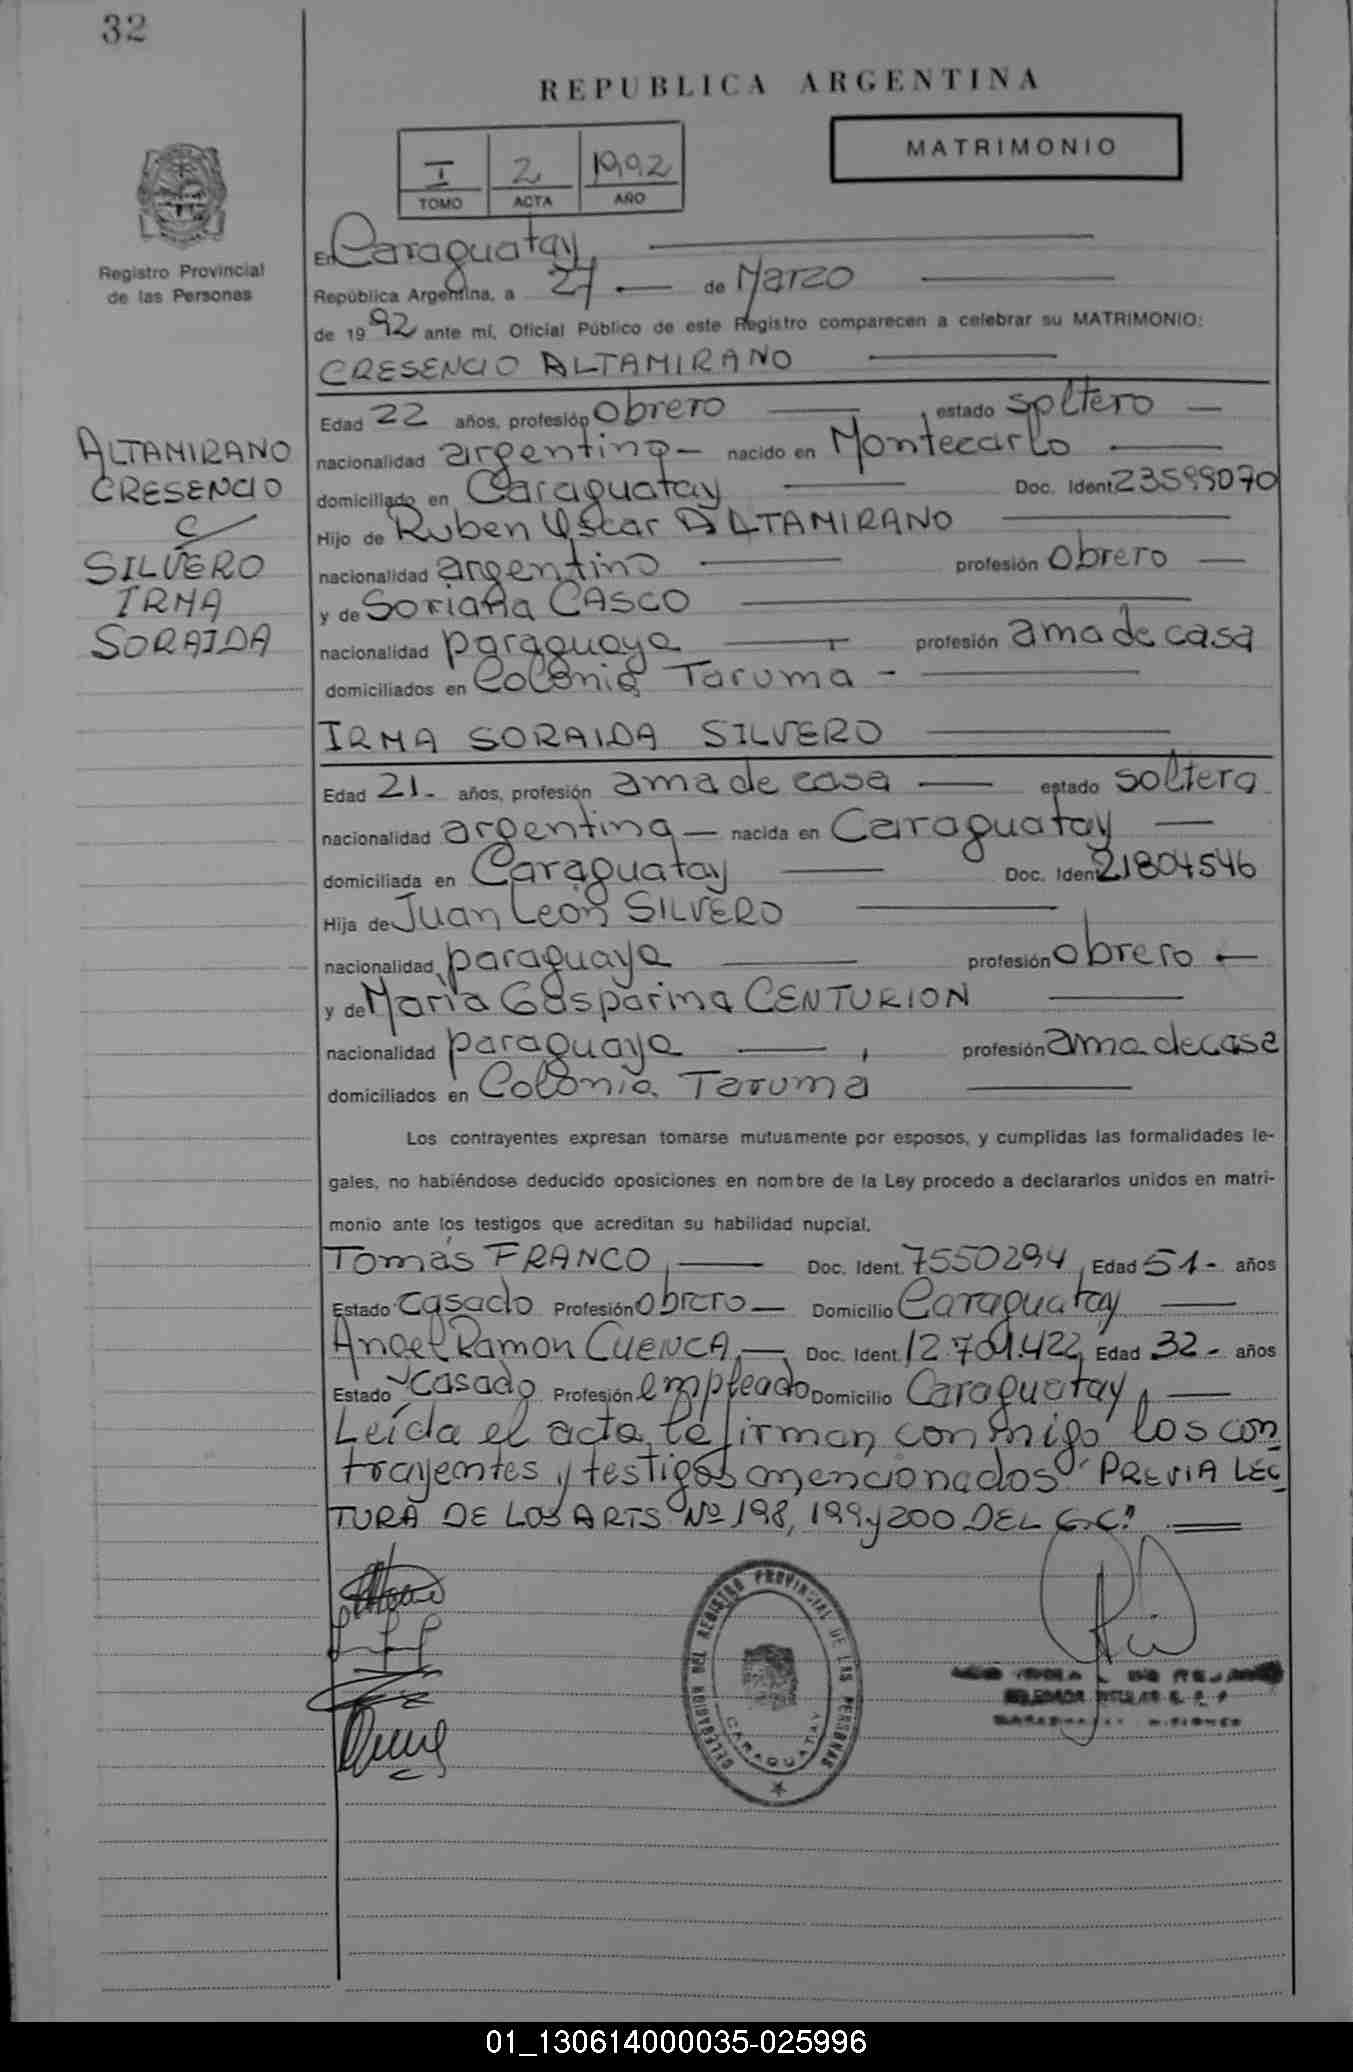 32
REPUBLICA ARGENTINA
MATRIMONIO
I 2 1992
TOMO ACTA AÑO
Registro Provincial
de las Personas
En Caraguatay
República Argentina, a 27 de Marzo
de 1992 ante mí, Oficial Público de este Registro comparecen a celebrar su MATRIMONIO:
CRESENCIO ALTAMIRANO
Edad 22 años, profesión Obrero estado soltero
ALTAMIRANO
CRESENCIO
c/
SILVERO
IRMA
SORAIDA
nacionalidad argentino nacido en Montecarlo
domiciliado en Caraguatay Doc. Ident 23599070
Hijo de Ruben Oscar ALTAMIRANO
nacionalidad argentino profesión Obrero
y de Soriana CASCO
nacionalidad paraguaya profesión ama de casa
domiciliados en Colonia Taruma
IRMA SORAIDA SILVERO
Edad 21 años, profesión ama de casa estado soltera
nacionalidad argentina nacida en Caraguatay
domiciliada en Caraguatay Doc. Ident 21804546
Hija de Juan León SILVERO
nacionalidad paraguaya profesión obrero
y de María Gasparina CENTURION
nacionalidad paraguaya profesión ama de casa
domiciliados en Colonia Taruma
Los contrayentes expresan tomarse mutuamente por esposos, y cumplidas las formalidades le-
gales, no habiéndose deducido oposiciones en nombre de la Ley procedo a declararlos unidos en matri-
monio ante los testigos que acreditan su habilidad nupcial.
Tomás FRANCO Doc. Ident. 7550294 Edad 51 años
Estado casado Profesión obrero Domicilio Caraguatay
Angel Ramon CUENCA Doc. Ident. 12.701.422 Edad 32 años
Estado casado Profesión empleado Domicilio Caraguatay
Leída el acta, la firman conmigo los con
trayentes y testigos mencionados "PREVIA LEC
TURA DE LOS ARTS Nº 198, 199 y 200 DEL C.C."
DELEGACION DEL REGISTRO PROVINCIAL DE LAS PERSONAS
CARAGUATAY
01_130614000035-025996